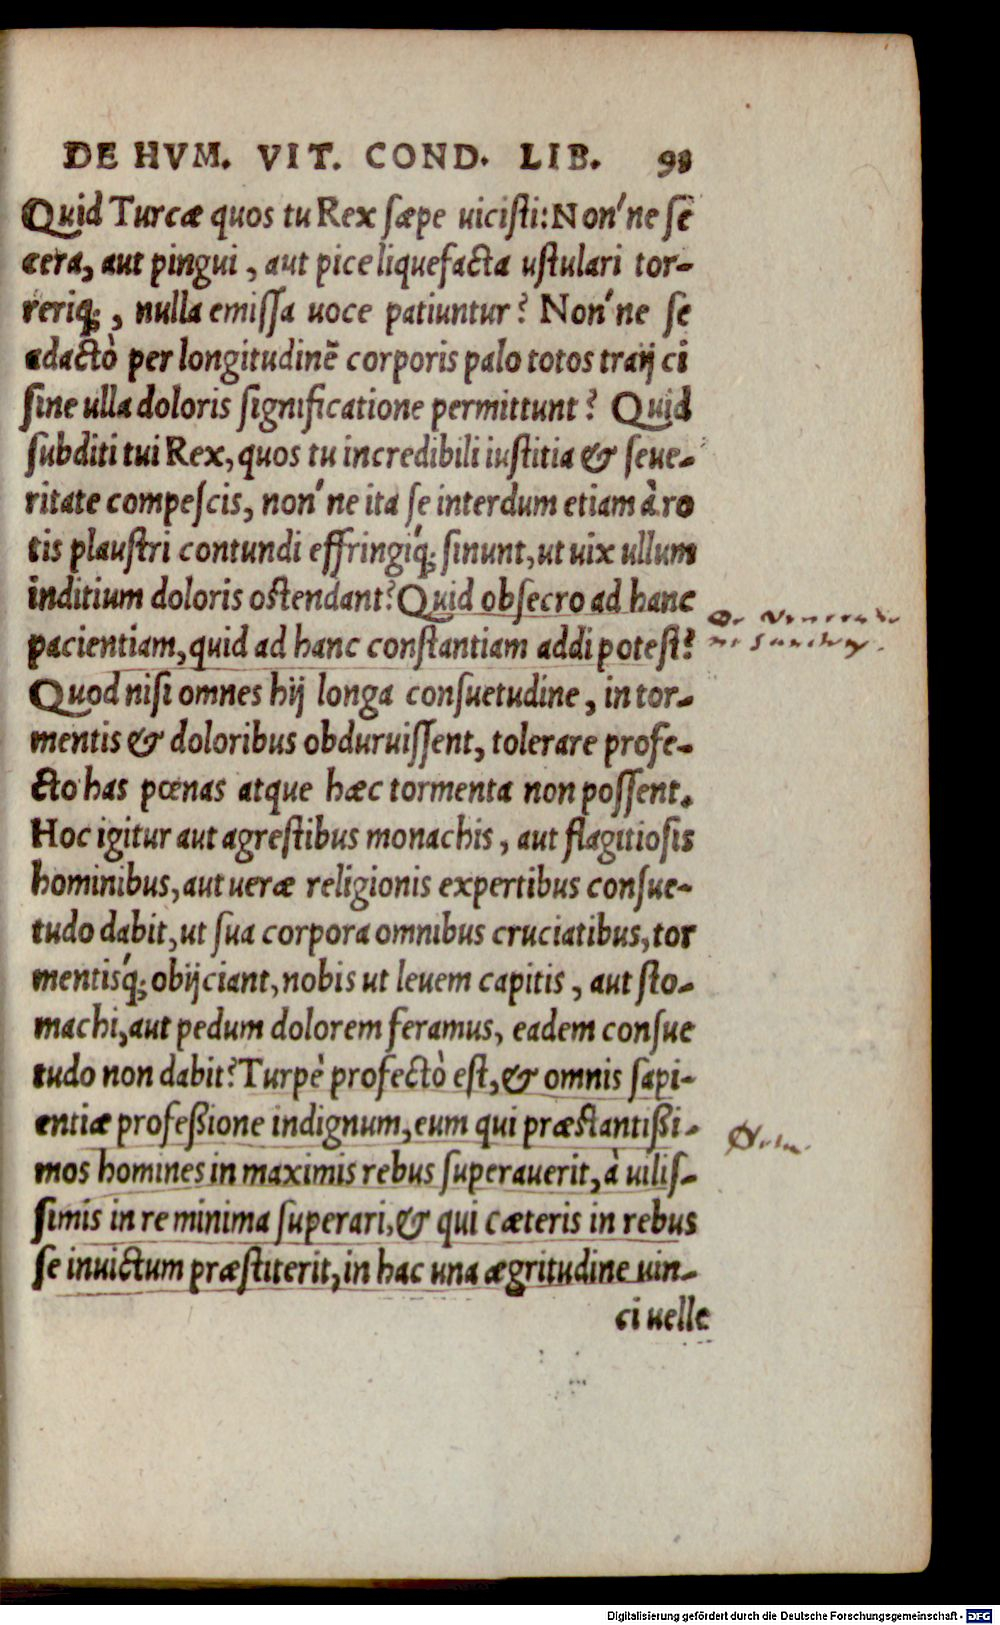 DE HVM. VIT. COND. LIB. 98
Quid Turcæ quos tu Rex ſæpe uiciſti: Non'ne ſe
cera, aut pingui, aut pice liquefacta uſtulari tor-
reriq́;, nulla emiſſa uoce patiuntur? Non'ne ſe
adactò per longitudinẽ corporis palo totos traijci
ſine ulla doloris ſignificatione permittunt? Quid
ſubditi tui Rex, quos tu incredibili iuſtitia & ſeue-
ritate compeſcis, non'ne ita ſe interdum etiam à ro
tis plauſtri contundi effringiq́; ſinunt, ut uix ullum
inditium doloris oſtendant? Quid obſecro ad hanc
pacientiam, quid ad hanc conſtantiam addi poteſt?
Quod niſi omnes hij longa conſuetudine, in tor-
mentis & doloribus obduruiſſent, tolerare profe-
cto has pœnas atque hæc tormenta non poſſent.
Hoc igitur aut agreſtibus monachis, aut flagitioſis
hominibus, aut ueræ religionis expertibus conſue-
tudo dabit, ut ſua corpora omnibus cruciatibus, tor
mentisq́; obijciant, nobis ut leuem capitis, aut ſto-
machi, aut pedum dolorem feramus, eadem conſue
tudo non dabit? Turpè profectò eſt, & omnis ſapi-
entiæ profeßione indignum, eum qui præſtantißi-
mos homines in maximis rebus ſuperauerit, à uiliſ-
ſimis in re minima ſuperari, & qui cæteris in rebus
ſe inuictum præſtiterit, in hac una ægritudine uin-
ci uelle
Digitalisierung gefördert durch die Deutsche Forschungsgemeinschaft - DFG